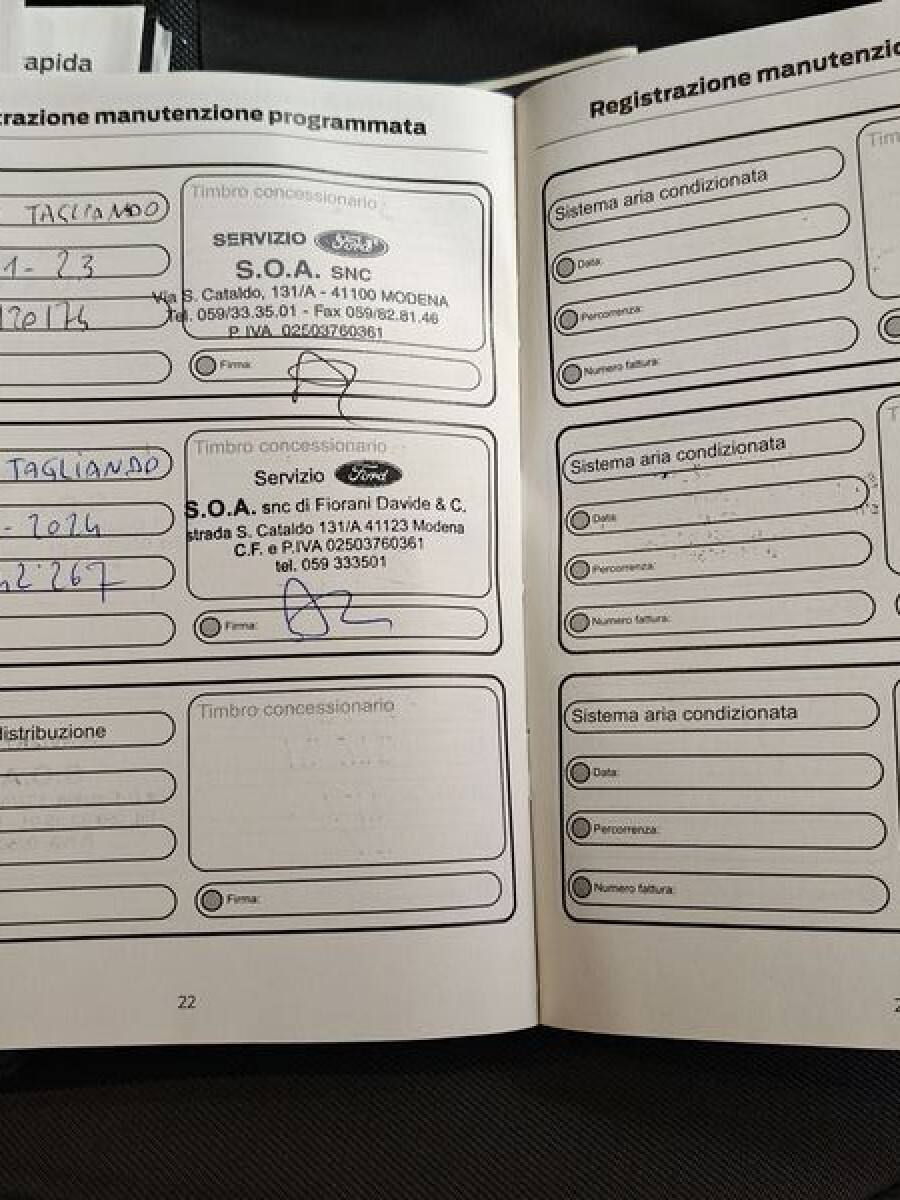 apida
trazione manutenzione programmata
TAGLIANDO
1-23
120174
Timbro concessionario
SERVIZIO Ford
S.O.A. SNC
Via S. Cataldo, 131/A - 41100 MODENA
Tel. 059/33.35.01 - Fax 059/82.81.46
P. IVA 02503760361
Firma:
TAGLIANDO
- 2024
2267
Timbro concessionario
Servizio Ford
S.O.A. snc di Fiorani Davide & C.
strada S. Cataldo 131/A 41123 Modena
C.F. e P.IVA 02503760361
tel. 059 333501
Firma:
distribuzione
Timbro concessionario
Firma:
22
Registrazione manutenzio
Sistema aria condizionata
Tim
Data:
Percorrenza:
Numero fattura:
Sistema aria condizionata
T
Data:
Percorrenza:
Numero fattura:
Sistema aria condizionata
Data:
Percorrenza:
Numero fattura:
2